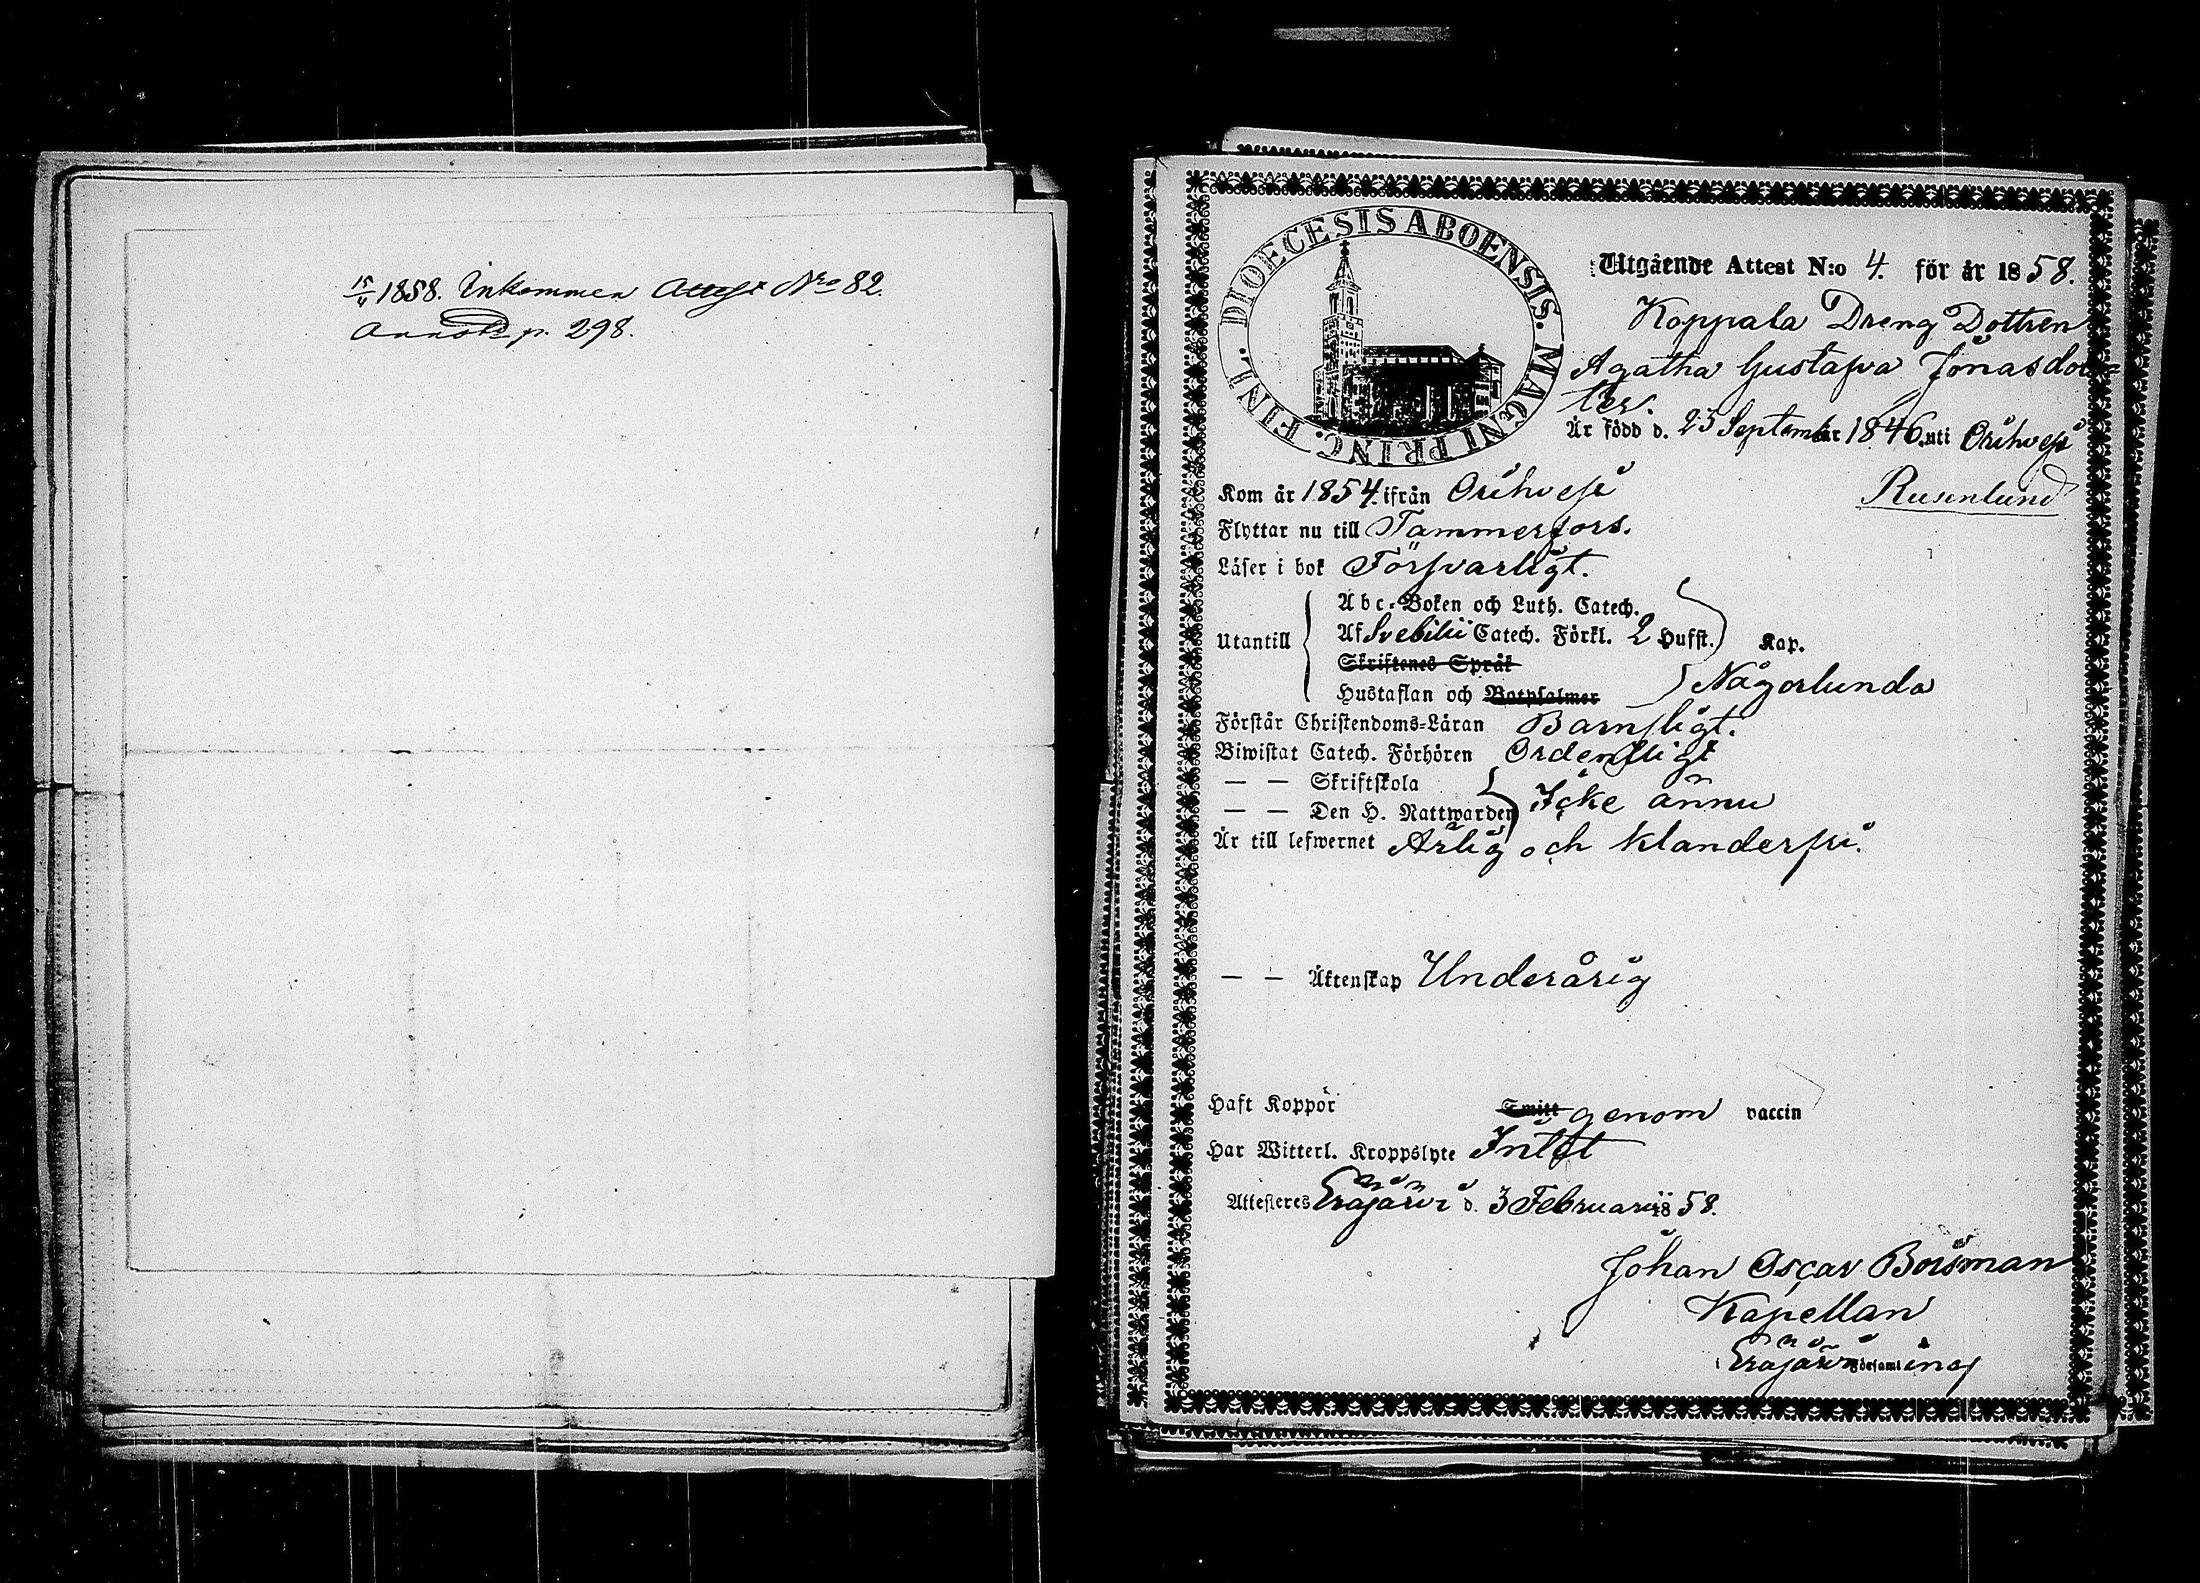 15/4 1858. Inkommen Attest Nro 82.
Annot. p. 298.
DIOECESIS ABOENSIS. MAGNI PRINC. FINL.
Utgående Attest N:o 4. för år 1858.
Koppala Dreng Dottren
Agatha Gustafva Jonasdot=
ter.
Är född d. 23 September 1846. uti Orihvesi
Kom år 1854. ifrån Orihvesi
Rusenlund
Flyttar nu till Tammerfors.
Läser i bok Försvarligt.
Utantill
Abc-Boken och Luth. Catech.
Af Svebilii Catech. Förkl. 2 Hufst. Kap.
Skriftenes Språk
Hustaflan och Botpsalmer Någorlunda
Förstår Christendoms-Läran Barnsligt.
Biwistat Catech. Förhören Ordentligt
— — Skriftskola
— — Den H. Nattwarden Icke ännu
Är till lefwernet Ärlig och klanderfri.
— — Äktenskap Underårig
Haft Koppor Smitt genom vaccin
Har Witterl. Kroppslyte Intet
Attesteres Eräjärvi d. 3 Februarii 1858.
Johan Oscar Boisman
Kapellan
Eräjärvi Församling